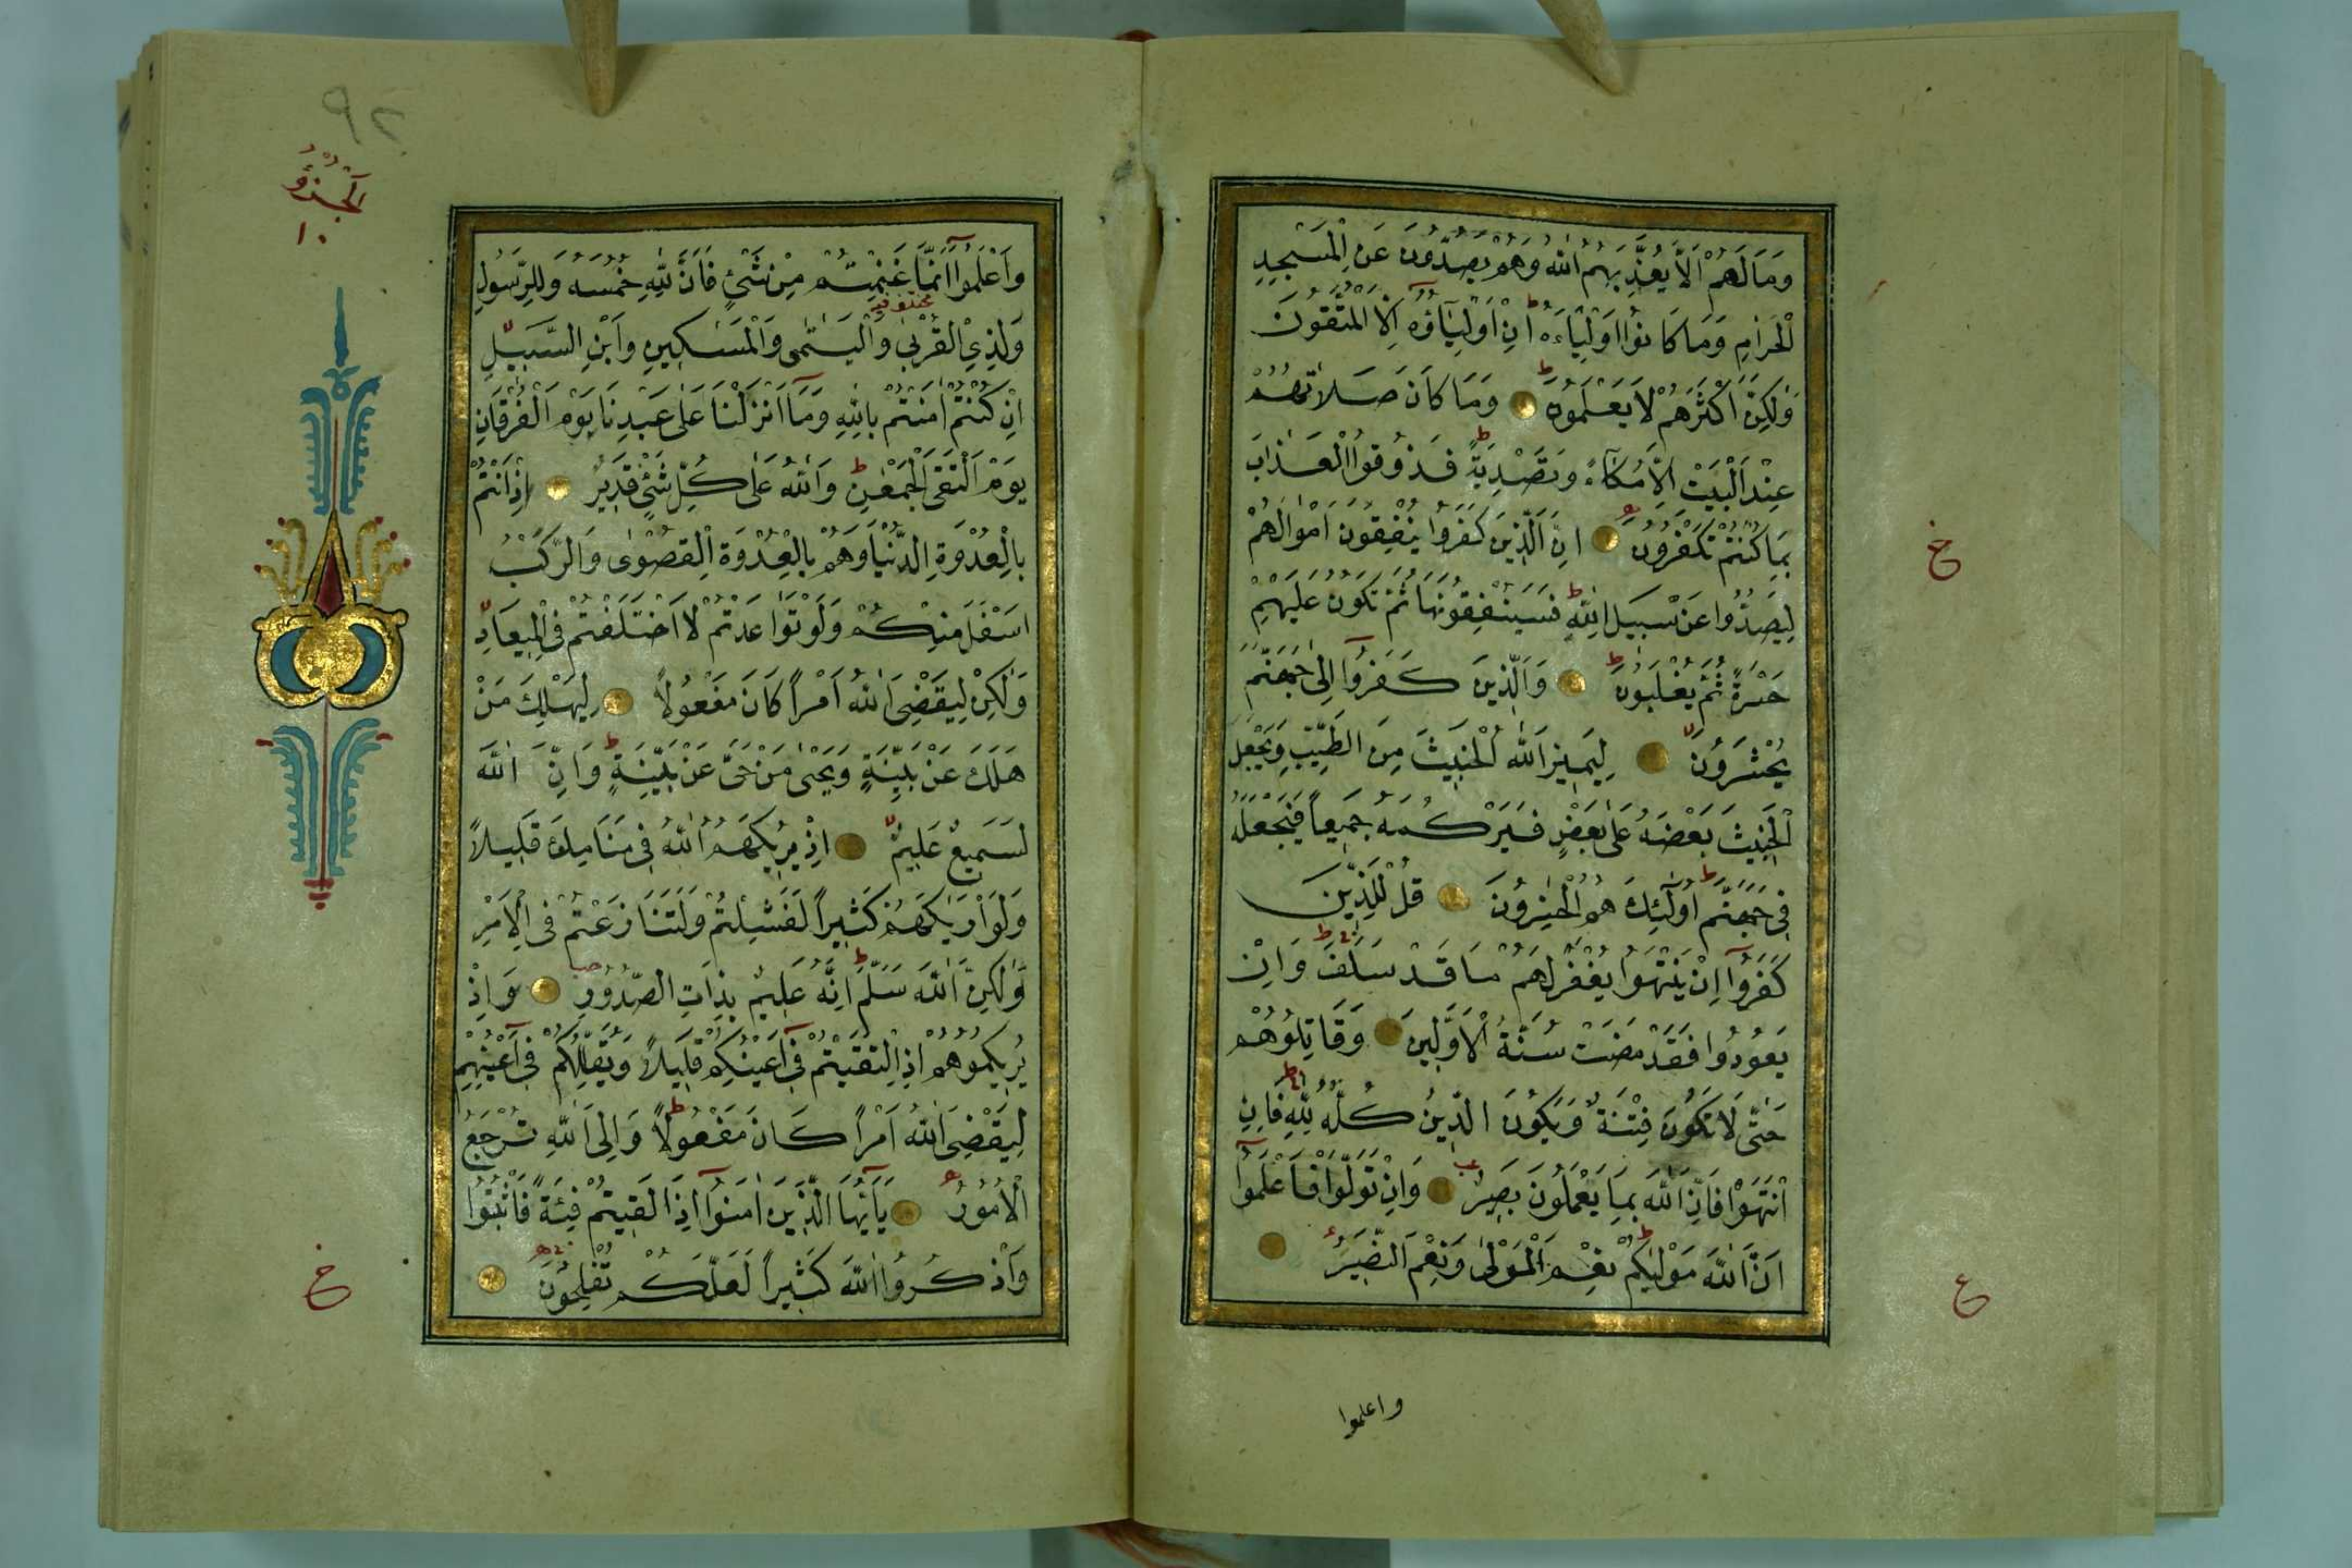 وَمَا لَهُمْ اَلَّا يُعَذِّبَهُمُ اللّٰهُ وَهُمْ يَصُدُّونَ عَنِ الْمَسْجِدِ
الْحَرَامِ وَمَا كَانُوا اَوْلِيَاءَهُ اِنْ اَوْلِيَاؤُهُ اِلَّا الْمُتَّقُونَ
وَلٰكِنَّ اَكْثَرَهُمْ لَا يَعْلَمُونَ وَمَا كَانَ صَلَاتُهُمْ
عِنْدَ الْبَيْتِ اِلَّا مُكَاءً وَتَصْدِيَةً فَذُوقُوا الْعَذَابَ
بِمَا كُنْتُمْ تَكْفُرُونَ اِنَّ الَّذِينَ كَفَرُوا يُنْفِقُونَ اَمْوَالَهُمْ
لِيَصُدُّوا عَنْ سَبِيلِ اللّٰهِ فَسَيُنْفِقُونَهَا ثُمَّ تَكُونُ عَلَيْهِمْ
حَسْرَةً ثُمَّ يُغْلَبُونَ وَالَّذِينَ كَفَرُوا اِلٰى جَهَنَّمَ
يُحْشَرُونَ لِيَمِيزَ اللّٰهُ الْخَبِيثَ مِنَ الطَّيِّبِ وَيَجْعَلَ
الْخَبِيثَ بَعْضَهُ عَلٰى بَعْضٍ فَيَرْكُمَهُ جَمِيعاً فَيَجْعَلَهُ
فِي جَهَنَّمَ اُولٰئِكَ هُمُ الْخٰسِرُونَ قُلْ لِلَّذِينَ
كَفَرُوا اِنْ يَنْتَهُوا يُغْفَرْ لَهُمْ مَا قَدْ سَلَفَ وَاِنْ
يَعُودُوا فَقَدْ مَضَتْ سُنَّةُ الْاَوَّلِينَ وَقَاتِلُوهُمْ
حَتّٰى لَا تَكُونَ فِتْنَةٌ وَيَكُونَ الدِّينُ كُلُّهُ لِلّٰهِ فَاِنِ
انْتَهَوْا فَاِنَّ اللّٰهَ بِمَا يَعْمَلُونَ بَصِيرٌ وَاِنْ تَوَلَّوْا فَاعْلَمُوا
اَنَّ اللّٰهَ مَوْلٰيكُمْ نِعْمَ الْمَوْلٰى وَنِعْمَ النَّصِيرُ
خ
ع
واعلموا
٩٢
الْجُزْؤُ
١٠
وَاعْلَمُوا اَنَّمَا غَنِمْتُمْ مِنْ شَيْءٍ فَاَنَّ لِلّٰهِ خُمُسَهُ وَلِلرَّسُولِ
وَلِذِي الْقُرْبٰى وَالْيَتٰمٰى وَالْمَسٰكِينِ وَابْنِ السَّبِيلِ
اِنْ كُنْتُمْ اٰمَنْتُمْ بِاللّٰهِ وَمَا اَنْزَلْنَا عَلٰى عَبْدِنَا يَوْمَ الْفُرْقَانِ
يَوْمَ الْتَقَى الْجَمْعٰنِ وَاللّٰهُ عَلٰى كُلِّ شَيْءٍ قَدِيرٌ اِذْ اَنْتُمْ
بِالْعُدْوَةِ الدُّنْيَا وَهُمْ بِالْعُدْوَةِ الْقُصْوٰى وَالرَّكْبُ
اَسْفَلَ مِنْكُمْ وَلَوْ تَوَاعَدْتُمْ لَاخْتَلَفْتُمْ فِي الْمِيعَادِ
وَلٰكِنْ لِيَقْضِيَ اللّٰهُ اَمْراً كَانَ مَفْعُولاً لِيَهْلِكَ مَنْ
هَلَكَ عَنْ بَيِّنَةٍ وَيَحْيٰى مَنْ حَيَّ عَنْ بَيِّنَةٍ وَاِنَّ اللّٰهَ
لَسَمِيعٌ عَلِيمٌ اِذْ يُرِيكَهُمُ اللّٰهُ فِي مَنَامِكَ قَلِيلاً
وَلَوْ اَرٰيكَهُمْ كَثِيراً لَفَشِلْتُمْ وَلَتَنَازَعْتُمْ فِي الْاَمْرِ
وَلٰكِنَّ اللّٰهَ سَلَّمَ اِنَّهُ عَلِيمٌ بِذَاتِ الصُّدُورِ وَاِذْ
يُرِيكُمُوهُمْ اِذِ الْتَقَيْتُمْ فِي اَعْيُنِكُمْ قَلِيلاً وَيُقَلِّلُكُمْ فِي اَعْيُنِهِمْ
لِيَقْضِيَ اللّٰهُ اَمْراً كَانَ مَفْعُولاً وَاِلَى اللّٰهِ تُرْجَعُ
الْاُمُورُ يَا اَيُّهَا الَّذِينَ اٰمَنُوا اِذَا لَقِيتُمْ فِئَةً فَاثْبُتُوا
وَاذْكُرُوا اللّٰهَ كَثِيراً لَعَلَّكُمْ تُفْلِحُونَ
خ